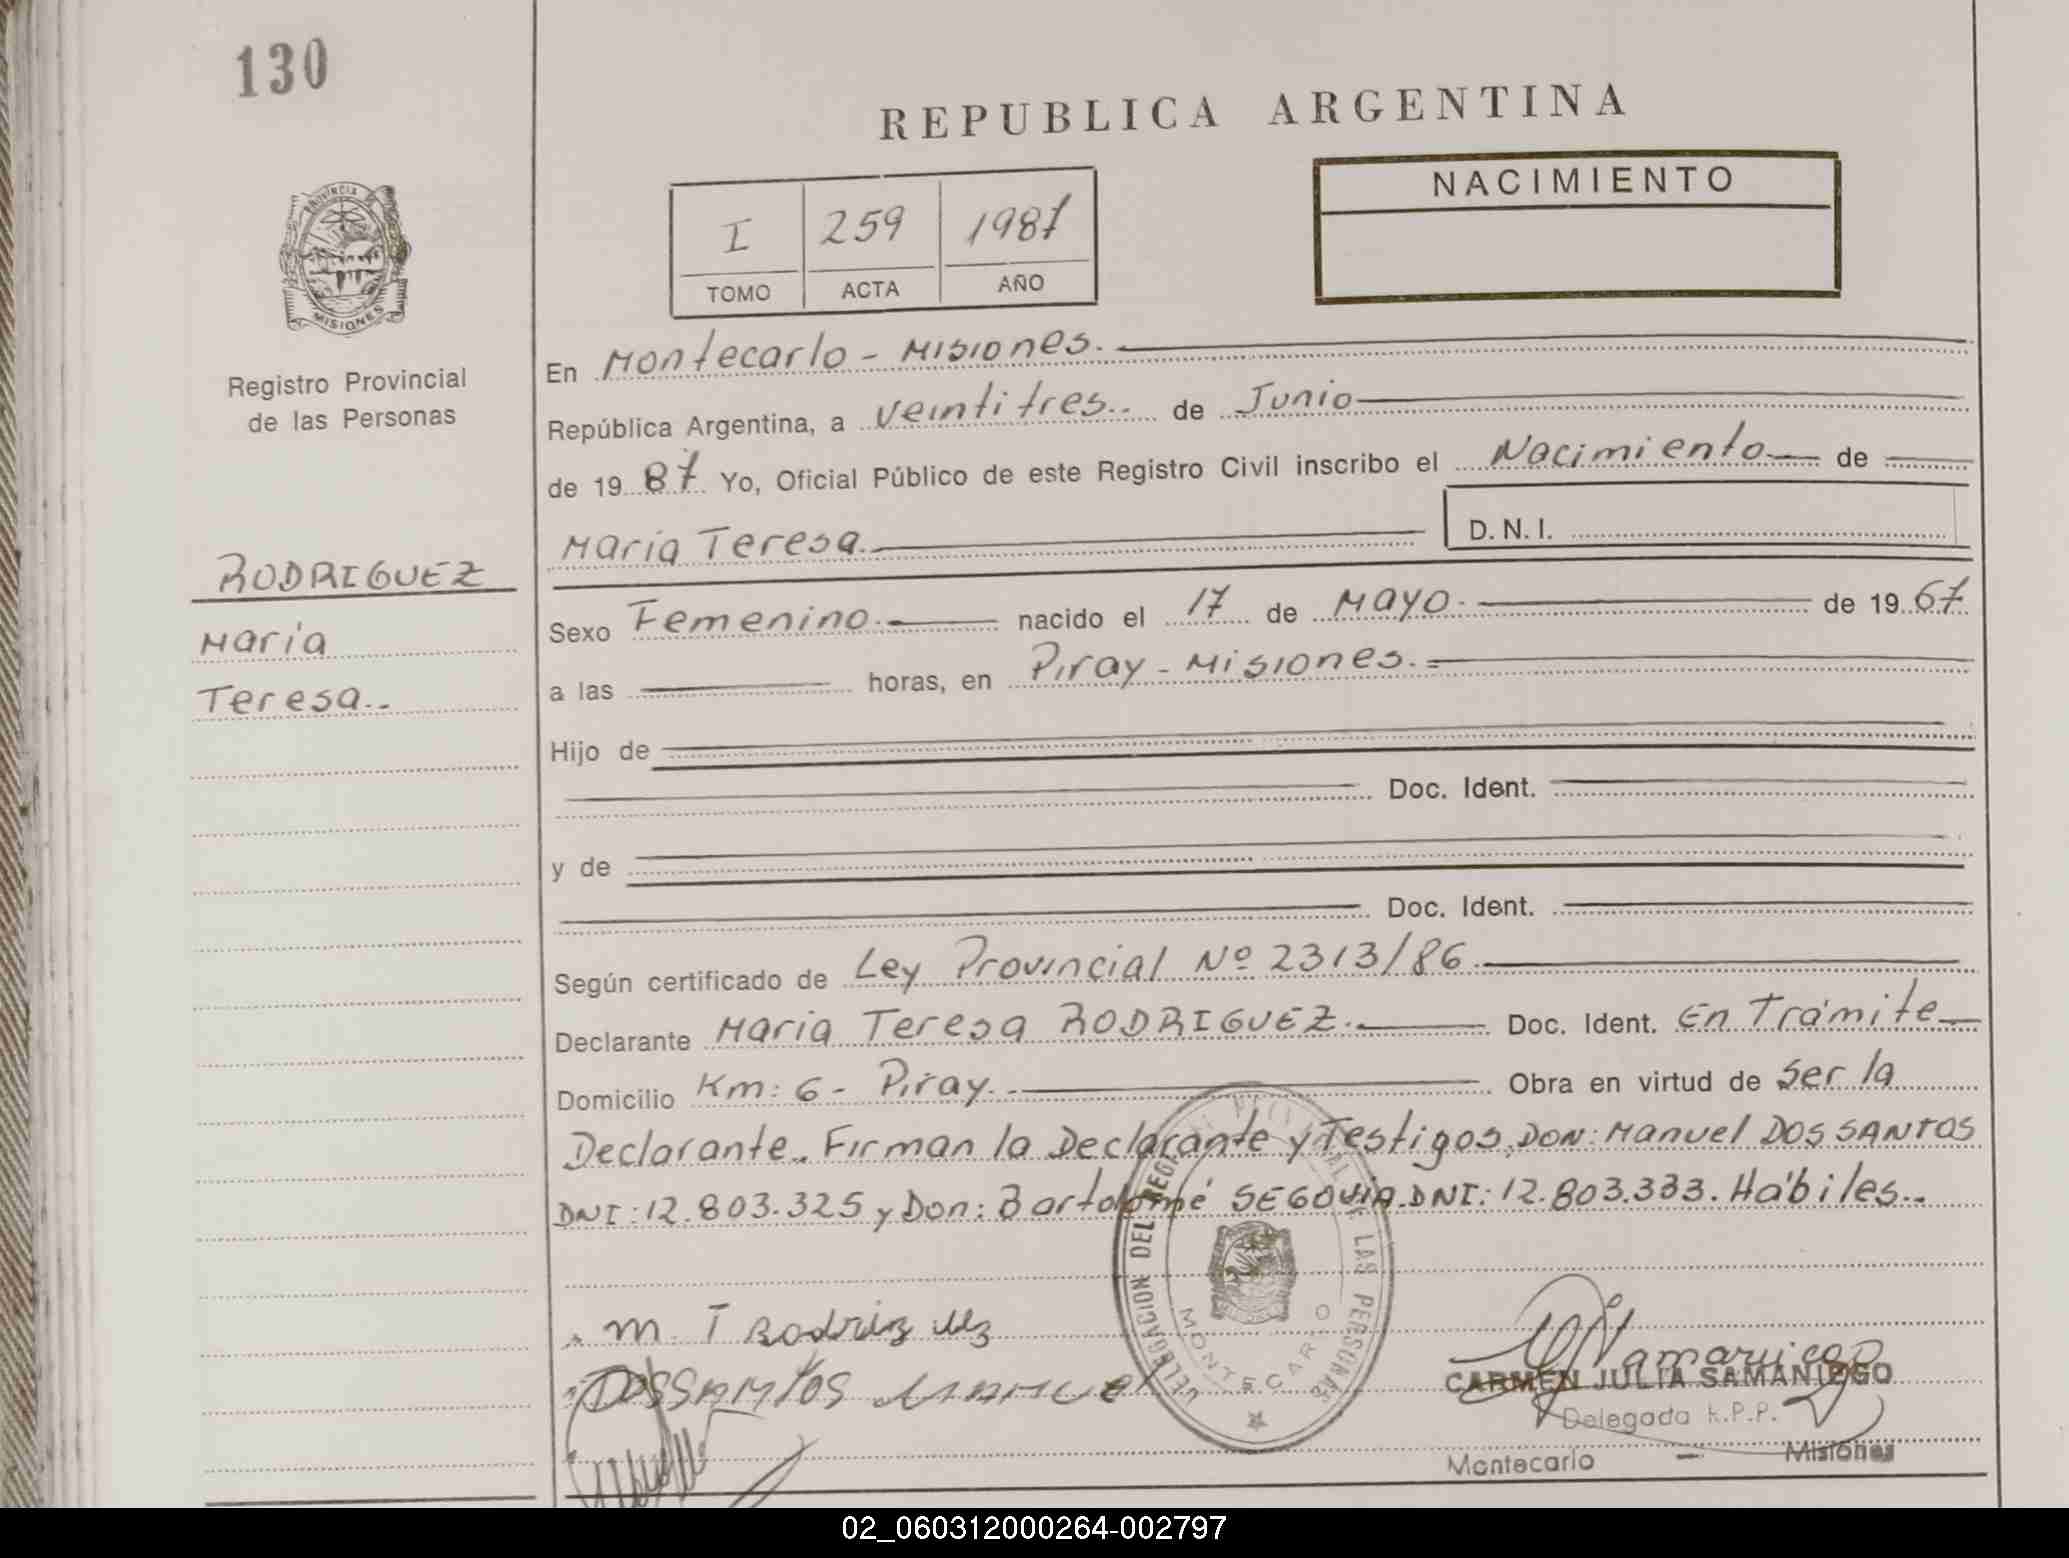 130
REPUBLICA ARGENTINA
NACIMIENTO
I 259 1987
TOMO ACTA AÑO
PROVINCIA
MISIONES
Registro Provincial
de las Personas
RODRIGUEZ
María
Teresa..
En Montecarlo - Misiones.
República Argentina, a veintitres.. de Junio
de 19 87 Yo, Oficial Público de este Registro Civil inscribo el Nacimiento de
María Teresa. D. N. I.
Sexo Femenino. nacido el 17 de Mayo. de 19 67
a las horas, en Piray - Misiones.
Hijo de
Doc. Ident.
y de
Doc. Ident.
Según certificado de Ley Provincial Nº 2313/86.
Declarante María Teresa RODRIGUEZ. Doc. Ident. En Trámite
Domicilio Km: 6 - Piray. Obra en virtud de ser la
Declarante.. Firman la Declarante y Testigos, DON: Manuel DOS SANTOS
DNI: 12.803.325 y Don: Bartolomé SEGOVIA. DNI: 12.803.333. Hábiles..
DELEGACION DEL REGISTRO PROVINCIAL DE LAS PERSONAS
MONTECARLO
M. T Rodriguez
DOSSANTOS MANUEL
CARMEN JULIA SAMANIEGO
Delegada R.P.P.
Montecarlo - Misiones
02_060312000264-002797